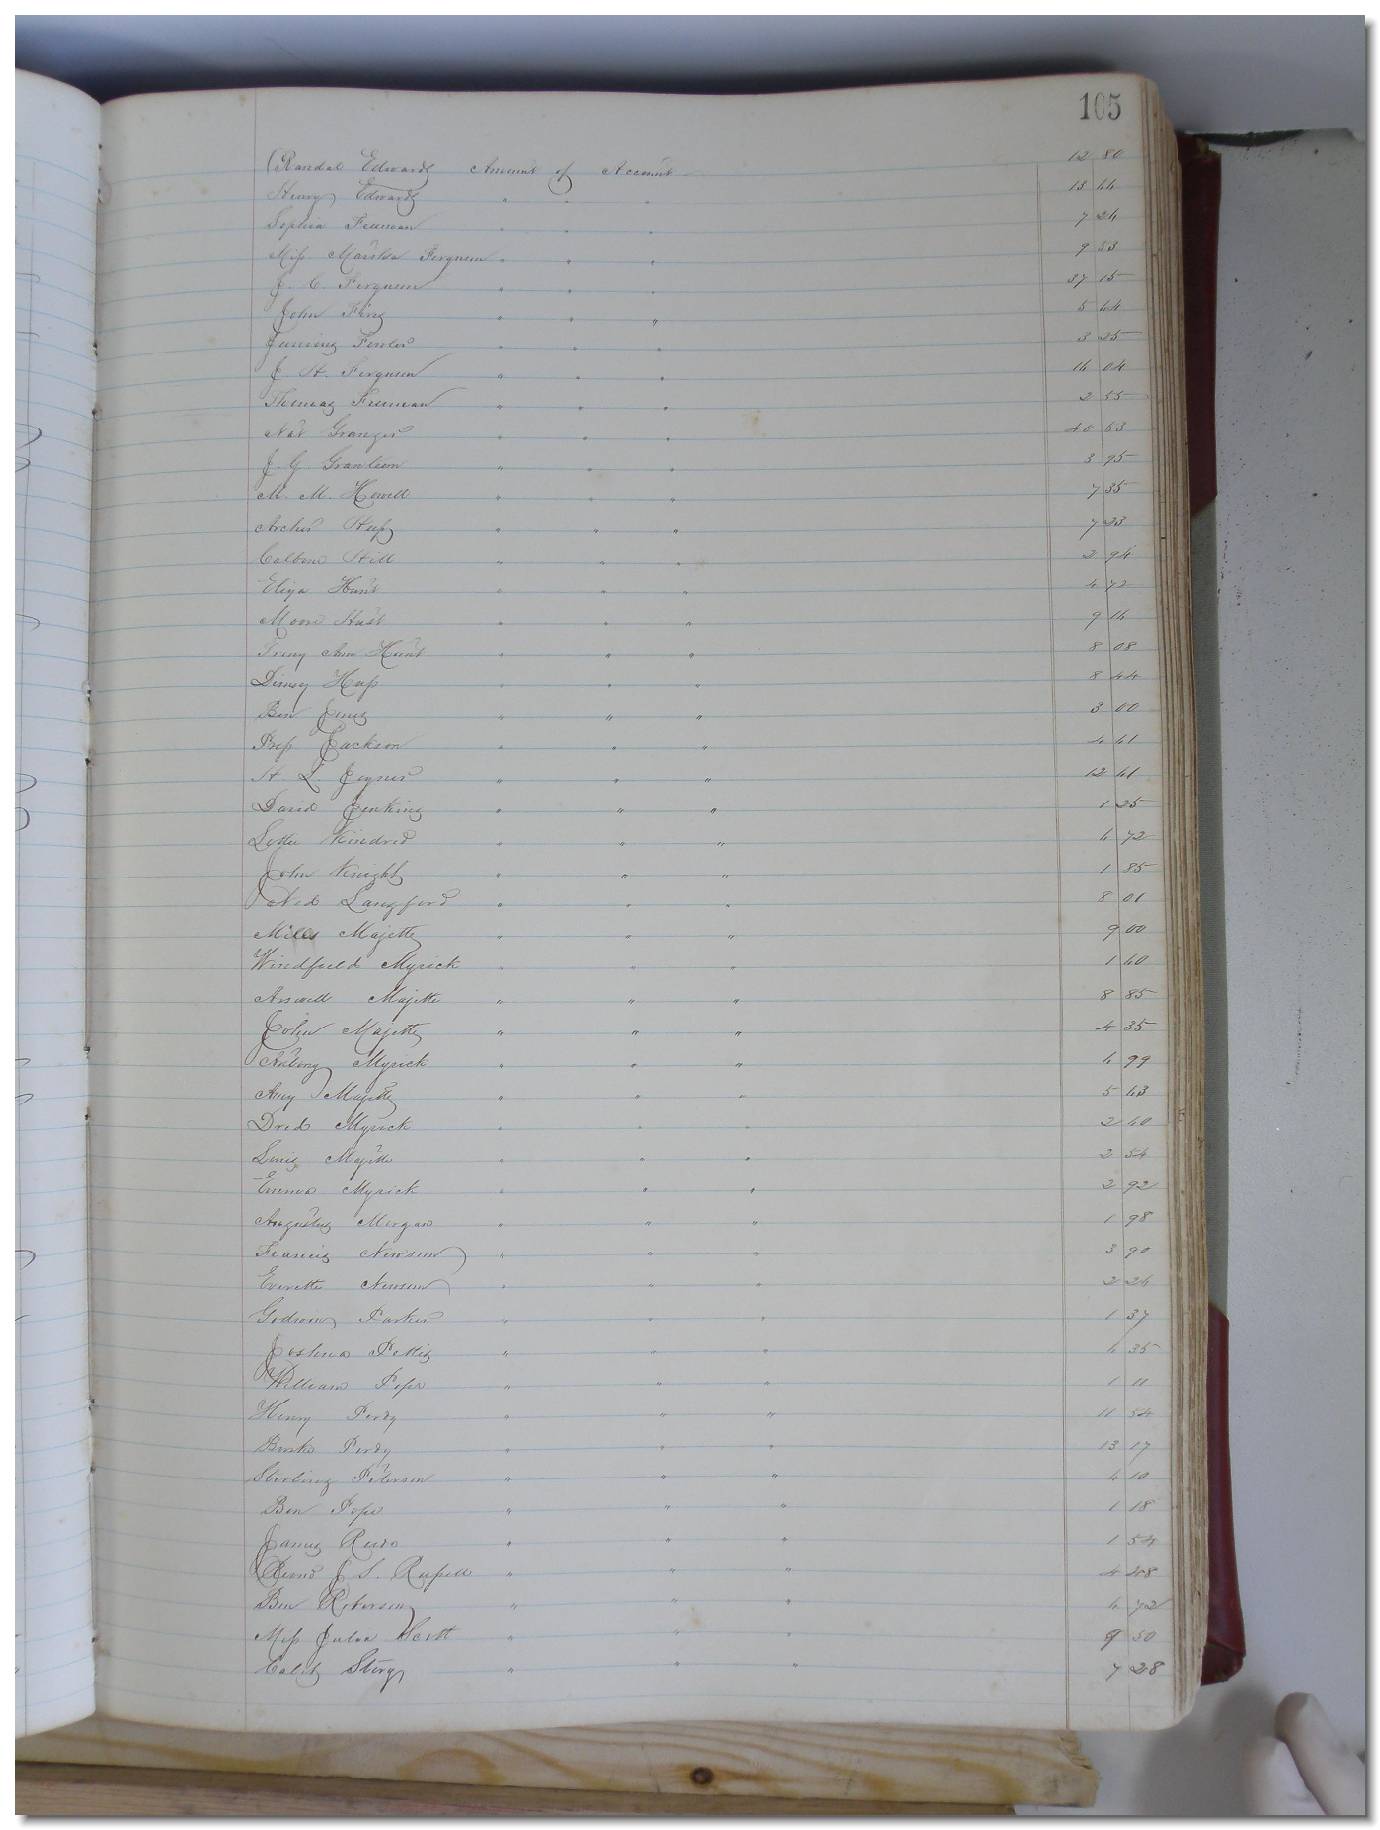 105
Randal Edwards Amount of Account 12 80
Henry Edwards " " " 13 44
Sophia Freeman " " " 7 24
Miss Martha Ferguson " " " 9 53
J. C. Ferguson " " " 37 15
John " " " 5 64
" " " 3 25
J H. Ferguson " " " 16 04
Thomas Freeman " " " 2 55
Nat Granger " " " 63
J. G. " " " 3 95
M. M. Howell " " " 7 35
Archer " " " 7 23
Hill " " " 2 94
Eliza Hunt " " " 4 72
Moore " " " 9 16
Ann Hunt " " " 8 08
" " " 8 44
Ben Jones " " " 3 00
Jackson " " " 4 61
H L. Joyner " " " 12 61
David Jenkins " " " 25
Kindred " " " 6 72
John Knight " " " 1 85
Ned Langford " " " 8 01
Mills Majette " " " 9 00
Windfield Myrick " " " 1 60
Majette " " " 8 85
John Majette " " " 4 35
Antony Myrick " " " 6 99
Amy Majette " " " 5 63
Dred Myrick " " " 2 60
Lewis Majette " " " 2 54
Emma Myrick " " " 2 92
Augustus Morgan " " " 1 98
Francis Newsom " " " 3 90
Everette Newsom " " " 2 24
Godwin Parker " " " 1 37
Joshua " " " 6 35
William Pope " " " 1 11
Henry Perdy " " " 11 54
Perdy " " " 13 17
Sterling Peterson " " " 4 10
Ben Pope " " " 1 18
James " " " 1 54
J. S. " " " 4 48
Ben Roberson " " " 6 72
Miss Julia Scott " " " 9 50
" " " 7 28